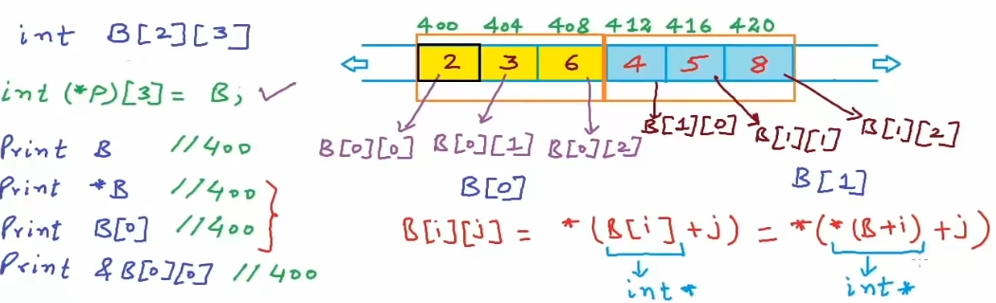 int B[2][3]
int (*P)[3] = B; ✓
Print B //400
Print *B //400
Print B[0] //400
Print &B[0][0] //400
400 404 408 412 416 420
2 3 6 4 5 8
B[0][0] B[0][1] B[0][2] B[1][0] B[1][1] B[1][2]
B[0] B[1]
B[i][j] = *(B[i]+j) = *(*(B+i)+j)
int* int*